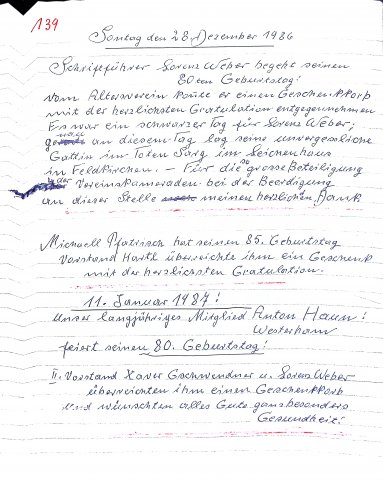 139
Sontag den 28 Dezember 1986
Schriftführer Lorenz Weber begeht seinen
80ten Geburtstag!
vom Altersverein konte er einen Geschenkkorb
mit der herzlichsten Gratulation entgegennehmen
Es war ein schwarzer Tag für Lorenz Weber;
an diesem Tag lag seine unvergessliche
Gattin im Toten Sarg im Leichenhaus
in Feldkirchen. – Für die so grosse Beteiligung
der Vereinskameraden bei der Beerdigung
an dieser Stelle meinen herzlichen Dank
Michaell Pfatrisch hat seinen 85. Geburtstag
Vorstand Hartl überreichte ihm ein Geschenk
mit der herzlichsten Gratulation.
11. Januar 1987!
Unser langjähriges Mitglied Anton Haun!
Westerham
feiert seinen 80. Geburtstag!
II. Vorstand Xaver Gschwendner u. Lorenz Weber
überreichten ihm einen Geschenkkorb
und wünschten alles Gute ganz besonders
Gesundheit!